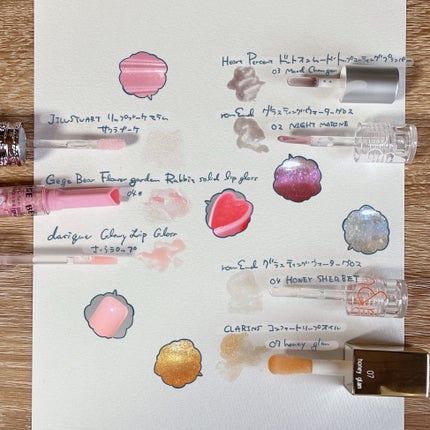 Heart Percent ドットオンムード リッププランピング
03 Mood Changer
JILL STUART リップブーケ セラム
サクラブーケ
rom&nd グラスティングウォーターグロス
02 NIGHT MARINE
Gege Bear Flower garden Rabbit solid lip gloss
#04
dasique Glowy Lip Gloss
rom&nd グラスティングウォーターグロス
04 HONEY SHERBET
CLARINS コンフォートリップオイル
07 honey glam
07
honey glam